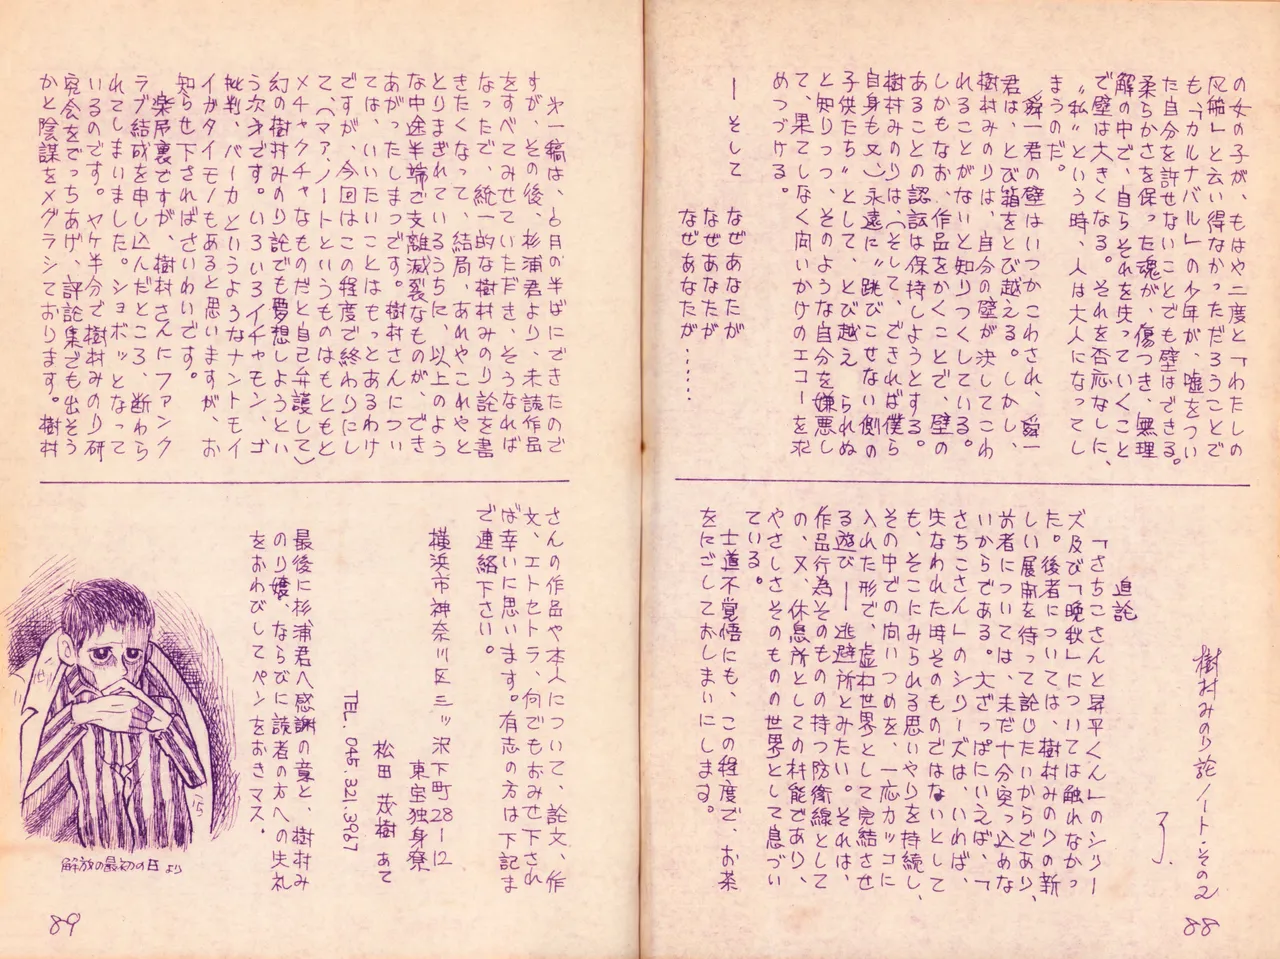 の女の子が、もはや二度と「わたしの
宍船」と云い得なかっただろうことで
も、「カルナバル」の少年が、嘘をつい
た自分を許せないことでも壁はできる。
柔らかさを保った魂が、傷つき、無理
解の中で、自らそれを失っていくこと
で壁は大きくなる。それを否応なしに、
〝私〟という時、人は大人になってし
まうのだ。
舜一君の壁はいつかこわされ、舜一
君は、とび箱をとび越える。しかし、
樹村みのりは、自分の壁が決してこわ
れることがないと知りつくしている。
しかもなお、作品をかくことで、壁の
あることの認識は保持しようとする。
樹村みのりは（そして、できれば僕ら
自身も又）永遠に〝跳びこせない側の
子供たち〟として、とび越え　られぬ
と知りつつ、そのような自分を嫌悪し
て、果てしなく向いかけのエコーを求
めつづける。
ー　そして
なぜあなたが
なぜあなたが
なぜあなたが……
樹村みのり論ノート・その2
了。
追記
「さちこさんと昇平くん」のシリー
ズ及び「晩秋」については触れなかっ
た。後者については、樹村みのりの新
しい展開を待って論じたいからであり、
前者については、未だ十分突っ込めな
いからである。大ざっぱにいえば、「
さちこさん」のシリーズは、いわば、
失なわれた時そのものではないとして
も、そこにみられる思いやりを持続し、
その中での向いつめを、一応カッコに
入れた形で、虚わ世界として完結させ
る遊び——逃避所とみたい。それは、
作品行為そのものの持つ防衛線として
の、又、休息所としての材能であり、
やさしさそのものの世界として息づい
ている。
士道不覚悟にも、この程度で、お茶
をにごしておしまいにします。
88
第一稿は、6月の半ばにできたので
すが、その後、杉浦君より、未読作品
をすべてみせていただき、そうなれば
なったで、統一的な樹村みのり論を書
きたくなって、結局、あれやこれやと
とりまぎれているうちに、以上のよう
な中途半端で支離滅裂なものが、でき
あがったしまつです。樹村さんについ
ては、いいたいことはもっとあるわけ
ですが、今回はこの程度で終わりにし
て、（マア、ノートというものはもともと
メチャクチャなものだと自己弁護して）
幻の樹村みのり論でも夢想しようとい
う次才です。いろいろイチャモン、ゴ
批判、バーカというようなナントモイ
イガタイモノもあると思いますが、お
知らせ下さればさいわいです。
楽屋裏ですが、樹村さんにファンク
ラブ結成を申し込んだところ、断わら
れてしまいました。ショボッとなって
いるのです。ヤケ半分で樹村みのり研
究会をでっちあげ、評論集でも出そう
かと陰謀をメグラシております。樹村
さんの作品や本人について、論文、作
文、エトセトラ、何でもおみせ下され
ば幸いに思います。有志の方は下記ま
で連絡下さい。
横浜市神奈川区三ッ沢下町28－12
東宝独身寮
松田　茂樹　あて
TEL. 045.321.3967
最後に杉浦君へ感謝の意と、樹村み
のり嬢、ならびに読者の方への失礼
をおわびしてペンをおきマス.
解放の最初の日より
89